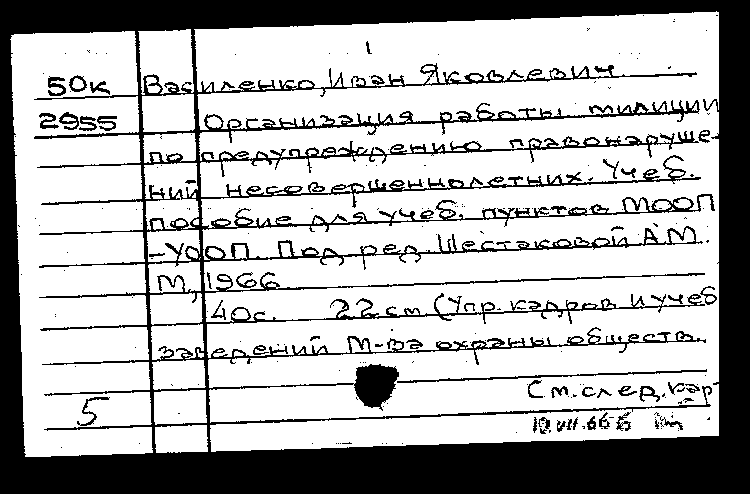 1
50к Василенко, Иван Яковлевич
2955 Организация работы милиции
по предупреждению правонаруше-
ний несовершеннолетних. Учеб.
пособие для учеб. пунктов МООП
-УООП. Под ред. Шестаковой А.М.
М., 1966
40с. 22 см (Упр. кадров и учеб
заведений М-ва охраны обществ.
См. след. кар-
5
19.VII.66